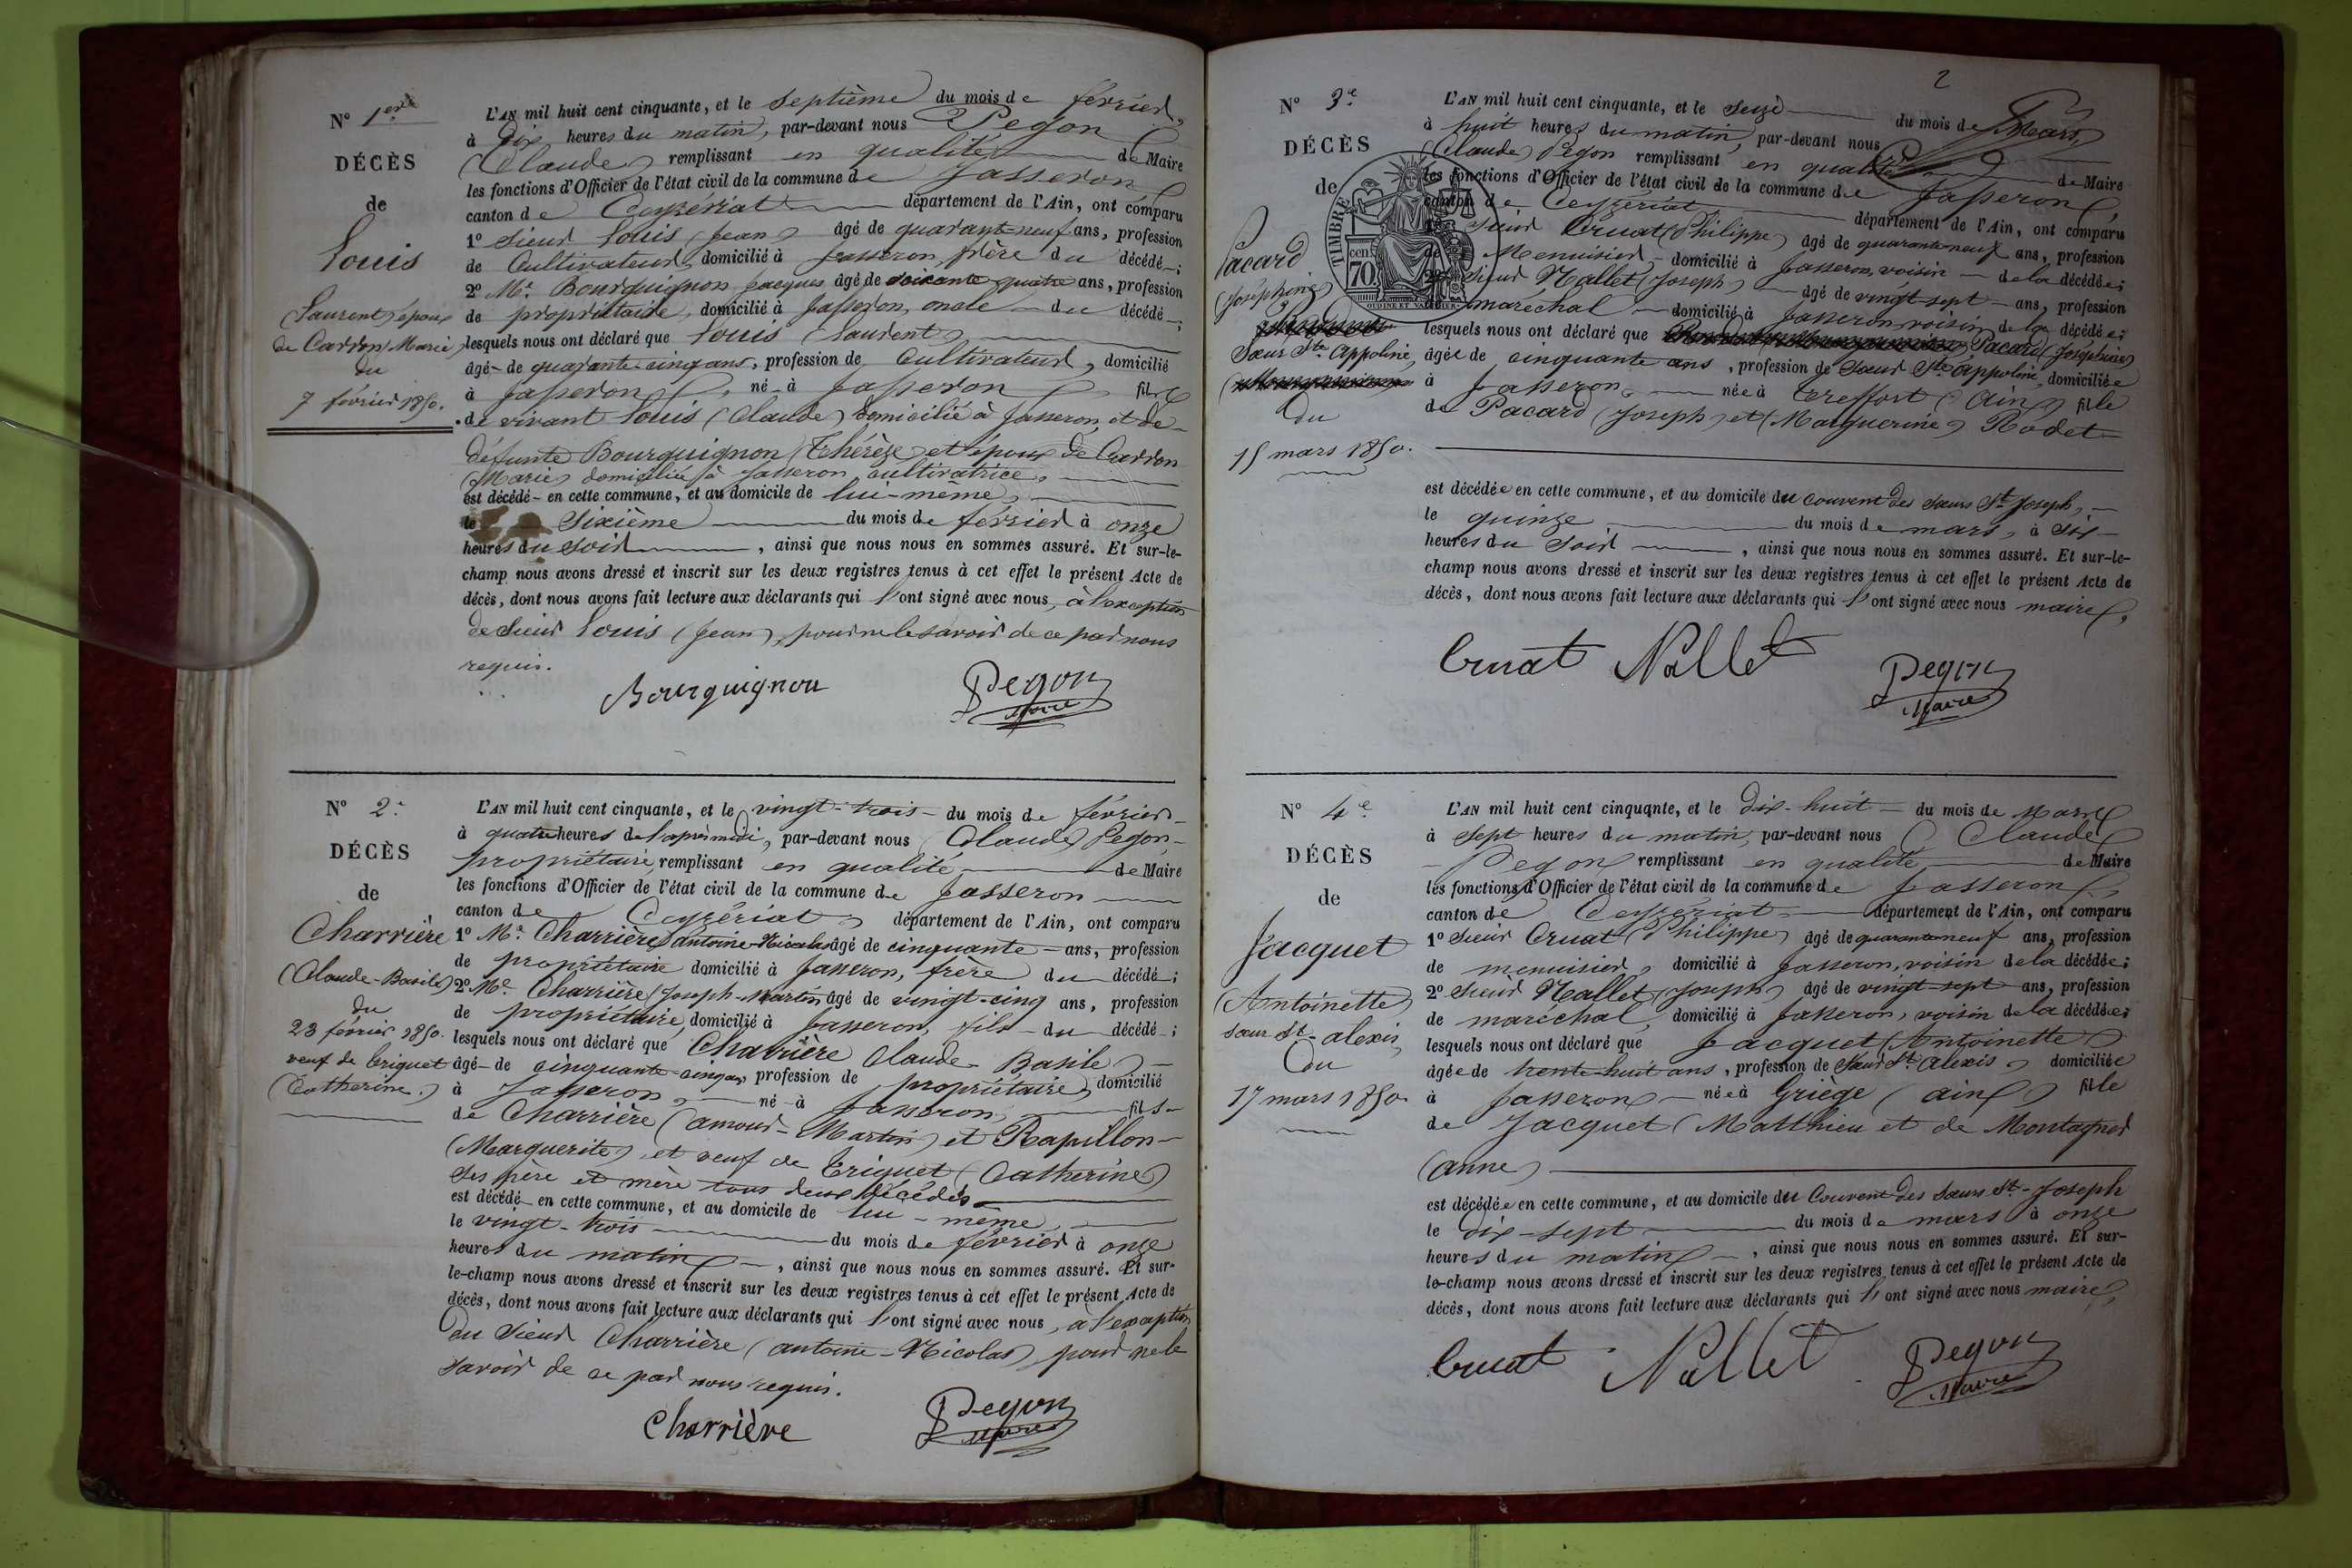 N° 1er
DÉCÈS
de
Louis
(Laurent) époux
de Carron (Marie)
du
7 février 1850.
L'AN mil huit cent cinquante, et le septième du mois de février,
à dix heures du matin, par-devant nous Pegon
(Claude) remplissant en qualité de Maire
les fonctions d'Officier de l'état civil de la commune de Jasseron
canton de Ceyzériat département de l'Ain, ont comparu
1° Sieur Louis (Jean) âgé de quarant-neuf ans, profession
de Cultivateur, domicilié à Jasseron, frère du décédé ;
2° Mr. Bourguignon Jacques âgé de soixante quatre ans, profession
de propriétaire, domicilié à Jasseron, oncle du décédé ;
lesquels nous ont déclaré que Louis (Laurent)
âgé de quarante-cinq ans, profession de Cultivateur, domicilié
à Jasseron, né à Jasseron fils
de vivant Louis (Claude) domicilié à Jasseron, et de
défunte Bourguignon (Thérèze) et époux de Carron
(Marie) domiciliée à Jasseron cultivatrice,
est décédé en cette commune, et au domicile de lui-même,
le sixième du mois de février à onze
heures du soir, ainsi que nous nous en sommes assuré. Et sur-le-
champ nous avons dressé et inscrit sur les deux registres tenus à cet effet le présent Acte de
décès, dont nous avons fait lecture aux déclarants qui l'ont signé avec nous, à l'exception
de Sieur Louis (Jean), pour ne le savoir de ce par nous
requis.
Bourguignon Pegon
Maire
N° 2e
DÉCÈS
de
Charrière
(Claude-Basile)
du
23 février 1850.
veuf de Criquet
(Catherine.)
L'AN mil huit cent cinquante, et le vingt-trois du mois de février
à quatre heures de l'après midi, par-devant nous Claude Pegon,
propriétaire, remplissant en qualité de Maire
les fonctions d'Officier de l'état civil de la commune de Jasseron
canton de Ceyzériat, département de l'Ain, ont comparu
1° Mr. Charrière Antoine-Nicolas âgé de cinquante ans, profession
de propriétaire domicilié à Jasseron, frère du décédé ;
2° Mr. Charrière (Joseph-Martin) âgé de vingt-cinq ans, profession
de propriétaire, domicilié à Jasseron, fils du décédé ;
lesquels nous ont déclaré que Charrière Claude-Basile
âgé de cinquante-cinq ans, profession de propriétaire, domicilié
à Jasseron, né à Jasseron, fils
de Charrière (amour-Martin) et Rapillon
(Marguerite), et veuf de Criquet (Catherine)
ses père et mère tous deux décédés
est décédé en cette commune, et au domicile de lui-même,
le vingt-trois du mois de février à onze
heures du matin, ainsi que nous nous en sommes assuré. Et sur-
le-champ nous avons dressé et inscrit sur les deux registres tenus à cet effet le présent Acte de
décès, dont nous avons fait lecture aux déclarants qui l'ont signé avec nous, à l'exception
du Sieur Charrière (antoine-Nicolas) pour ne le
savoir de ce par nous requis.
Charrière Pegon
Maire
2
N° 3e
DÉCÈS
de
Pacard
(Joséphine)
Sœur Ste. Appoline,
du
15 mars 1850.
TIMBRE
70 cen.
OUDINE ET
L'AN mil huit cent cinquante, et le seize du mois de Mars,
à huit heures du matin, par-devant nous
(Claude) Pegon remplissant en qualité de Maire
les fonctions d'Officier de l'état civil de la commune de Jasseron
canton de Ceyzériat département de l'Ain, ont comparu
1° Sieur Cruat (Philippe) âgé de quarante neuf ans, profession
de Menuisier domicilié à Jasseron, voisin de la décédée ;
2° Sieur Nallet (Joseph) âgé de vingt sept ans, profession
de maréchal domicilié à Jasseron voisin de la décédée ;
lesquels nous ont déclaré que Pacard (Joséphine)
âgée de cinquante ans, profession de Sœur Ste Appoline, domiciliée
à Jasseron, née à Treffort (Ain) fille
de Pacard (Joseph) et (Marguerine) Rodet
est décédée en cette commune, et au domicile du couvent des sœurs St. Joseph,
le quinze du mois de mars, à six
heures du soir, ainsi que nous nous en sommes assuré. Et sur-le-
champ nous avons dressé et inscrit sur les deux registres tenus à cet effet le présent Acte de
décès, dont nous avons fait lecture aux déclarants qui l'ont signé avec nous maire,
Cruat Nallet Pegon
Maire
N° 4e
DÉCÈS
de
Jacquet
(Antoinette)
sœur St-alexis,
Du
17 mars 1850.
L'AN mil huit cent cinquante, et le dix-huit du mois de Mars
à sept heures du matin, par-devant nous Claude
Pegon remplissant en qualité de Maire
les fonctions d'Officier de l'état civil de la commune de Jasseron,
canton de Ceyzériat, département de l'Ain, ont comparu
1° Sieur Cruat (Philippe) âgé de quarante neuf ans, profession
de menuisier, domicilié à Jasseron, voisin de la décédée ;
2° Sieur Nallet (Joseph) âgé de vingt sept ans, profession
de maréchal, domicilié à Jasseron, voisin de la décédée ;
lesquels nous ont déclaré que Jacquet (Antoinette)
âgée de trente-huit ans, profession de Sœur St. alexis, domiciliée
à Jasseron née à Griège (ain) fille
de Jacquet (Matthieu et de Montagner
(anne)
est décédée en cette commune, et au domicile du Couvent des sœurs St-Joseph
le dix-sept du mois de mars à onze
heures du matin, ainsi que nous nous en sommes assuré. Et sur-
le-champ nous avons dressé et inscrit sur les deux registres tenus à cet effet le présent Acte de
décès, dont nous avons fait lecture aux déclarants qui l'ont signé avec nous maire,
Cruat Nallet Pegon
Maire